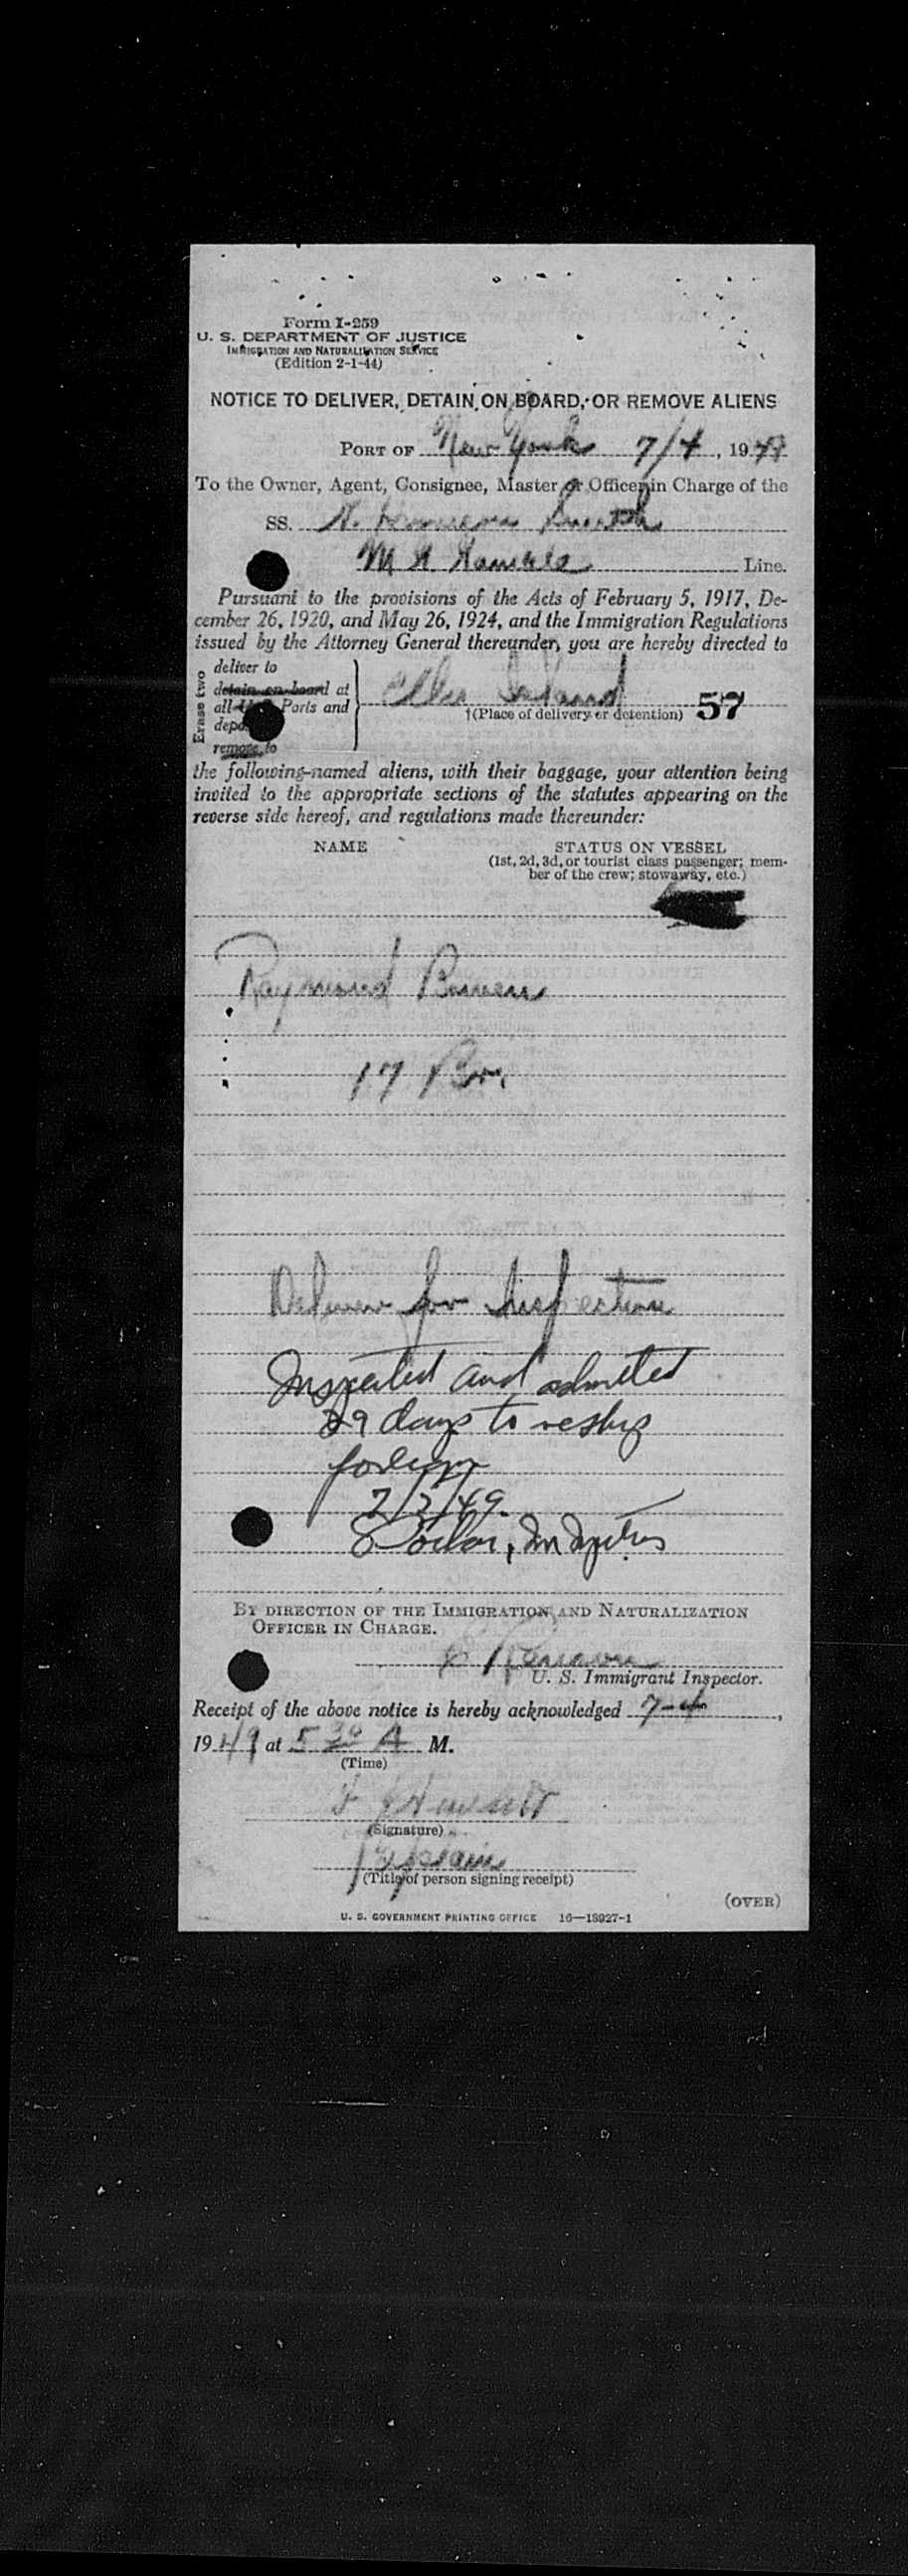 Form I-259
U. S. DEPARTMENT OF JUSTICE
IMMIGRATION AND NATURALIZATION SERVICE
(Edition 2-1-44)
NOTICE TO DELIVER, DETAIN ON BOARD, OR REMOVE ALIENS
PORT OF New York 7/4, 1949
To the Owner, Agent, Consignee, Master or Officer in Charge of the
SS. Smith
M Line.
Pursuant to the provisions of the Acts of February 5, 1917, De-
cember 26, 1920, and May 26, 1924, and the Immigration Regulations
issued by the Attorney General thereunder, you are hereby directed to
Erase two
deliver to
detain on board at
all Ports and
remove to
Ellis Island
†(Place of delivery or detention) 57
the following-named aliens, with their baggage, your attention being
invited to the appropriate sections of the statutes appearing on the
reverse side hereof, and regulations made thereunder:
NAME STATUS ON VESSEL
(1st, 2d, 3d, or tourist class passenger; mem-
ber of the crew; stowaway, etc.)
Raymond
17 Br.
Deliver for Inspection
Inspected and admitted
29 days to reship
foreign
7/7/49.
BY DIRECTION OF THE IMMIGRATION AND NATURALIZATION
OFFICER IN CHARGE.
U. S. Immigrant Inspector.
Receipt of the above notice is hereby acknowledged 7-4,
1949 at 5 30 A M.
(Time)
(Signature)
Captain
(Title of person signing receipt)
(OVER)
U. S. GOVERNMENT PRINTING OFFICE 16—18927-1